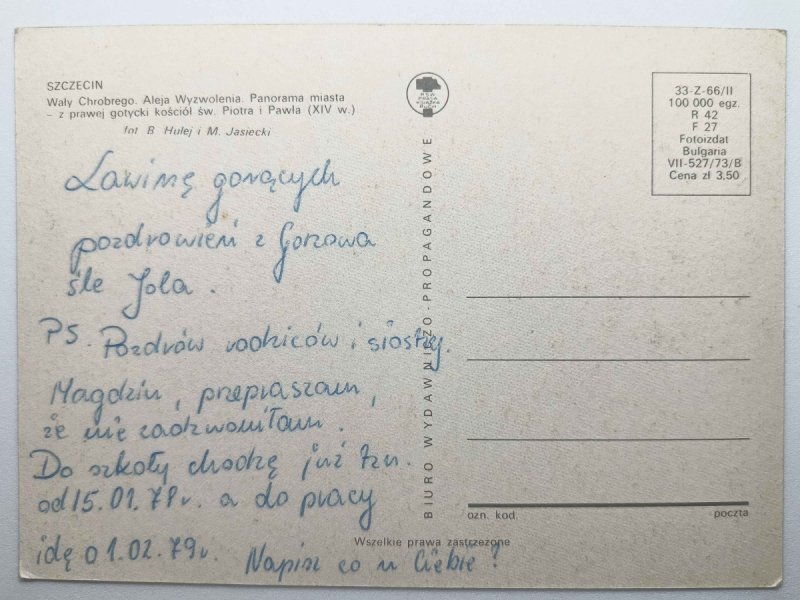 SZCZECIN
Wały Chrobrego. Aleja Wyzwolenia. Panorama miasta
– z prawej gotycki kościół św. Piotra i Pawła (XIV w.)
fot B. Hulej i M. Jasiecki
Lawinę gorących
pozdrowień z Gorzowa
śle Jola.
PS. Pozdrów rodziców i siostrę.
Magdziu, przepraszam,
że nie zadzwoniłam.
Do szkoły chodzę już tzn.
od 15.01.79r. a do pracy
idę o 1.02.79r. Napisz co u Ciebie?
RSW
PRASA
KSIĄŻKA
RUCH
BIURO WYDAWNICZO-PROPAGANDOWE
Wszelkie prawa zastrzeżone
33-Z-66/II
100 000 egz.
R 42
F 27
Fotoizdat
Bulgaria
VII-527/73/B
Cena zł 3.50
ozn. kod. poczta